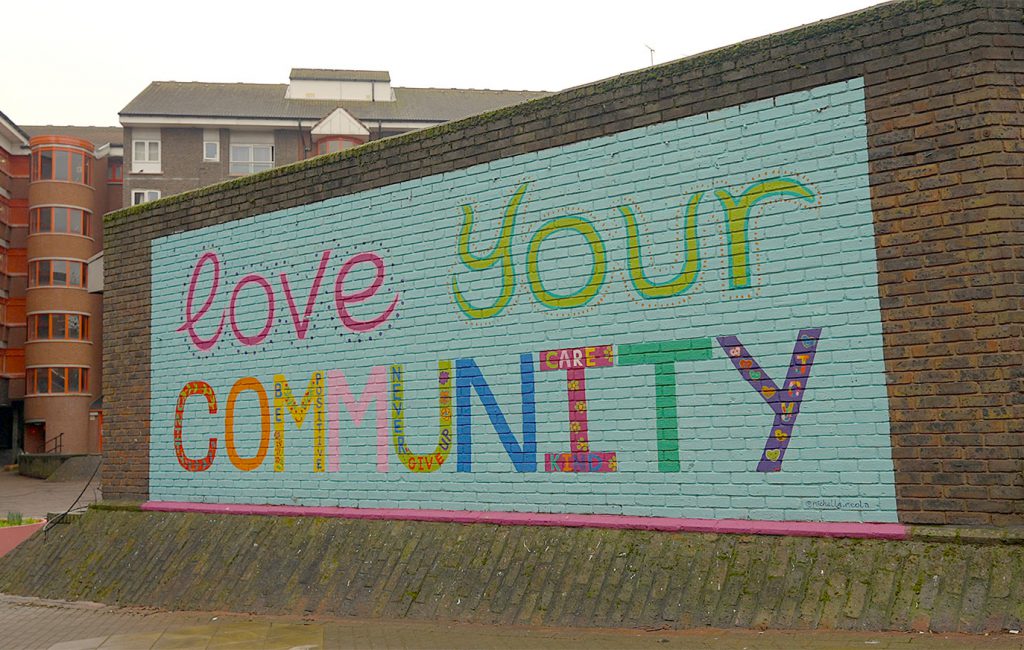 love your
COMMUNITY
BE
POSITIVE
NEVER
GIVE UP
CARE
KIND